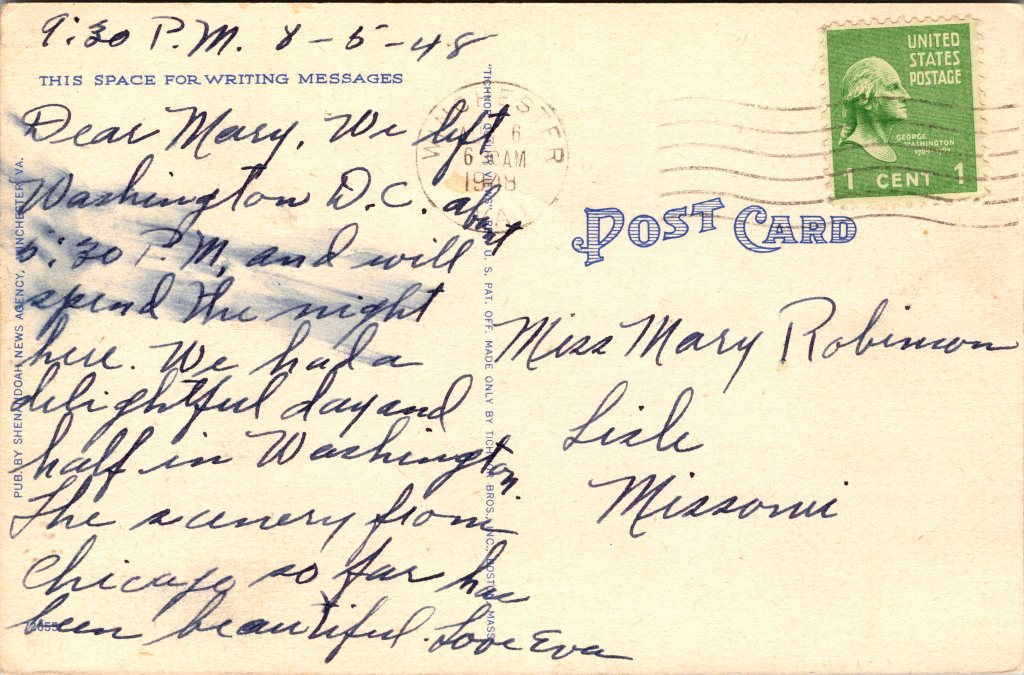 9:30 P.M. 8-5-48
THIS SPACE FOR WRITING MESSAGES
Dear Mary, We left
Washington D.C. about
5:30 P.M, and will
spend the night
here. We had a
delightful day and
half in Washington.
The scenery from
Chicago so far has
been beautiful. Love Eva
PUB. BY SHENANDOAH NEWS AGENCY, WINCHESTER VA.
U. S. PAT. OFF. MADE ONLY BY TICHNOR BROS., INC., BOSTON, MASS.
WINCHESTER
6
6 AM
1948
UNITED
STATES
POSTAGE
GEORGE
WASHINGTON
1 CENT 1
POST CARD
Miss Mary Robinson
Lisle
Missouri